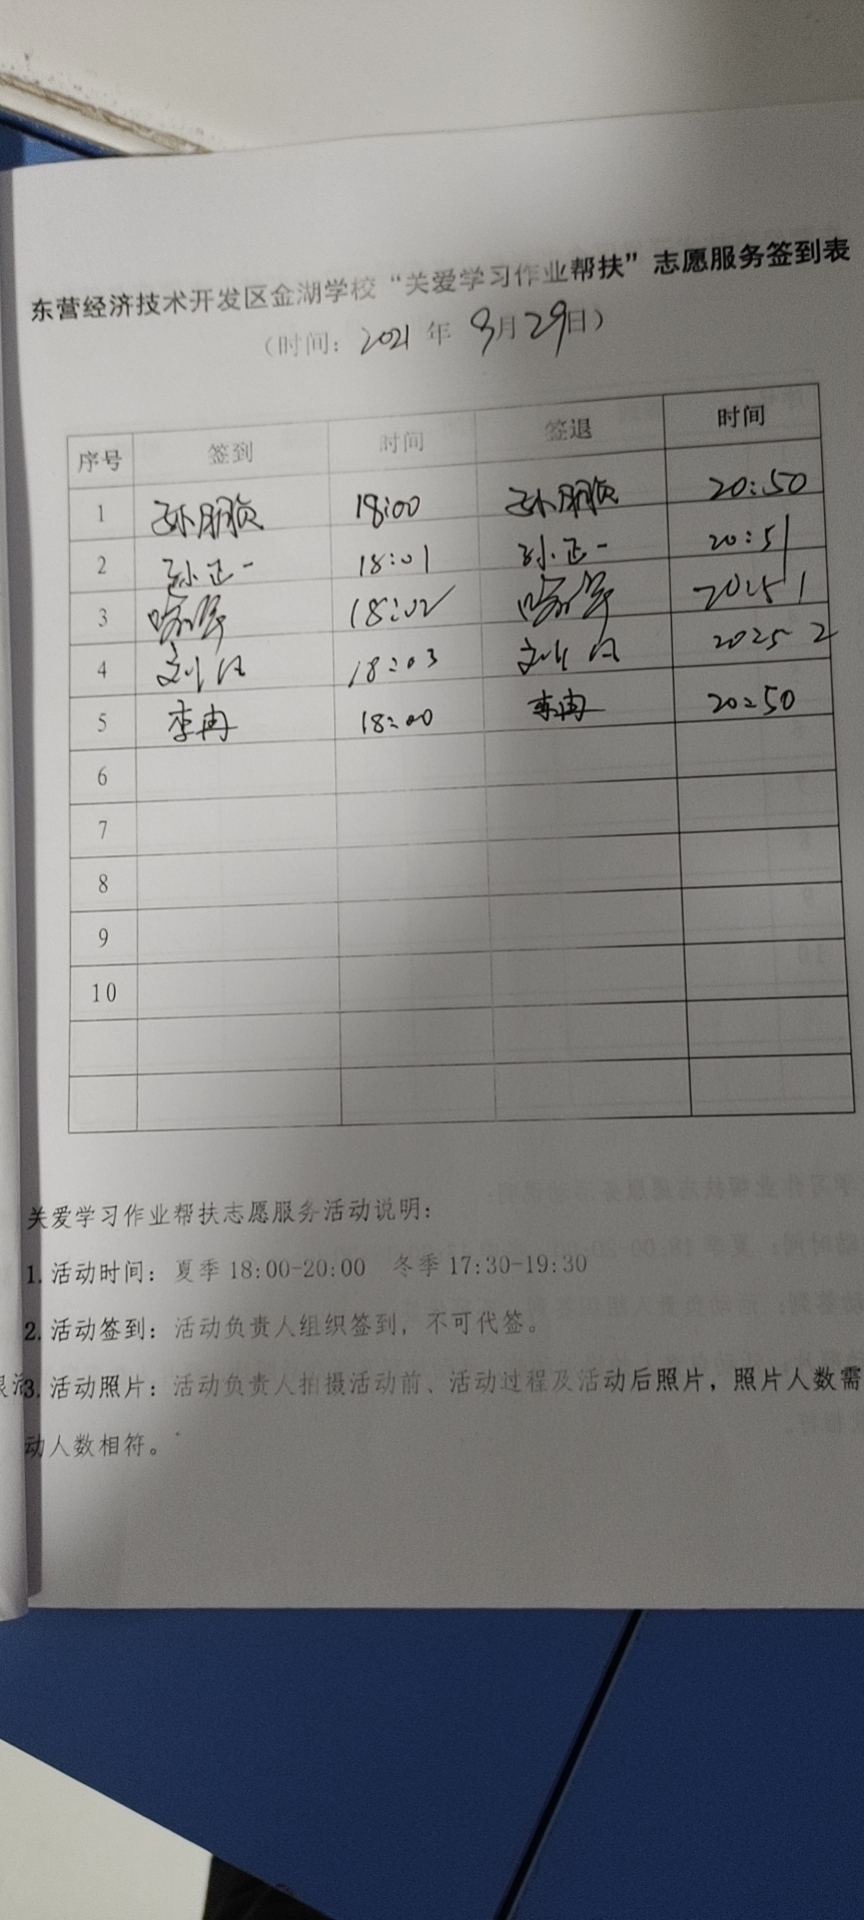 东营经济技术开发区金湖学校“关爱学习作业帮扶”志愿服务签到表
（时间：2021年9月29日）
序号 签到 时间 签退 时间
1 孙朋贞 18:00 孙朋贞 20:50
2 孙正一 18:01 孙正一 20:51
3 18:02 20:51
4 刘 18:03 刘 20:52
5 李冉 18:00 李冉 20:50
6
7
8
9
10
关爱学习作业帮扶志愿服务活动说明：
1.活动时间：夏季18:00-20:00 冬季17:30-19:30
2.活动签到：活动负责人组织签到，不可代签。
3.活动照片：活动负责人拍摄活动前、活动过程及活动后照片，照片人数需
动人数相符。